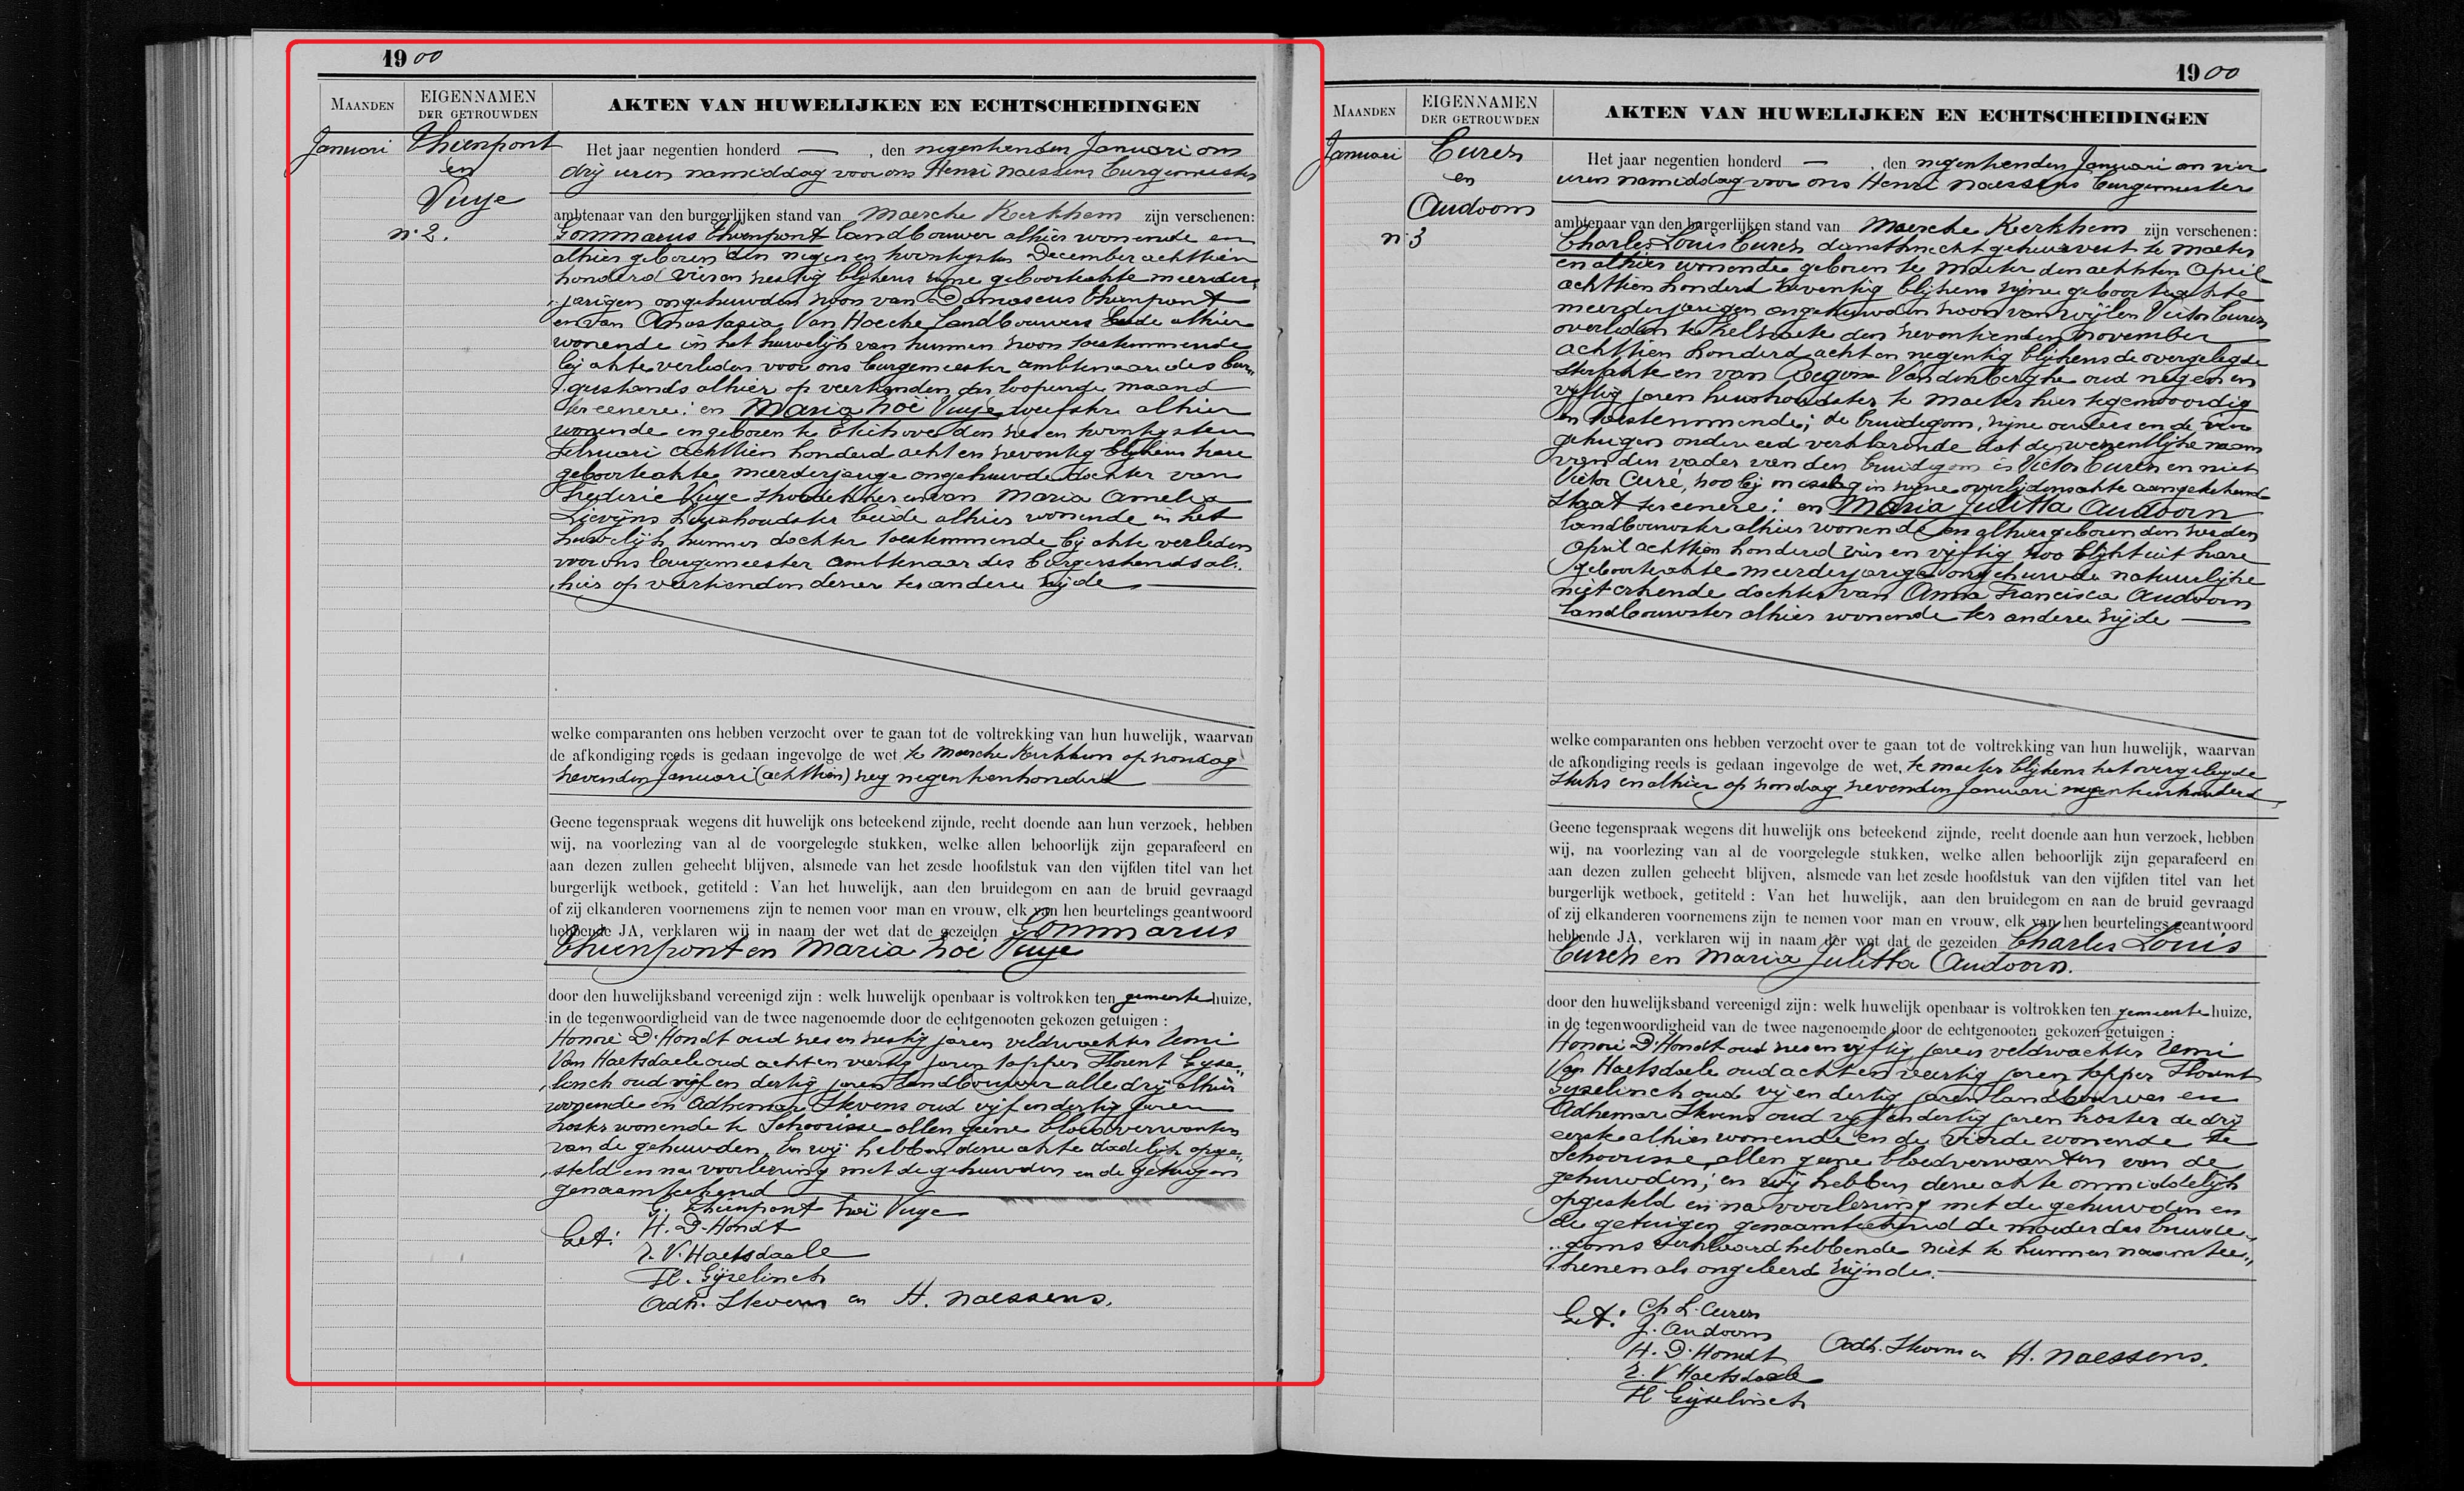 1900
MAANDEN
EIGENNAMEN
DER GETROUWDEN
AKTEN VAN HUWELIJKEN EN ECHTSCHEIDINGEN
Januari
Thienpont
en
Vuye
n. 2.
Het jaar negentien honderd — , den negentienden Januari om
drij uren namiddag voor ons Henri Naessens Burgemeester
ambtenaar van den burgerlijken stand van Maercke Kerkhem zijn verschenen:
Gommarus Thienpont landbouwer alhier wonende en
alhier geboren den negen en twintigsten December achttien
honderd vier en zestig blijkens zijne geboorteakte meerder„
„jarigen ongehuwden zoon van Damascus Thienpont
en van Anastasia Van Hoecke landbouwers beide alhier
wonende in het huwelijk van hunnen zoon toestemmende
bij akte verleden voor ons burgemeester ambtenaar des bur„
„gerstands alhier op veertienden der loopende maand
ter eenere; en Maria Zoë Vuye weefster alhier
wonende en geboren te Etichove den zes en twintigsten
Februari achttien honderd acht en zeventig blijkens hare
geboorteakte meerderjarige ongehuwde dochter van
Frederic Vuye stroodekker en van Maria Amelia
Lievijns huishoudster beide alhier wonende in het
huwelijk hunner dochter toestemmende bij akte verleden
voor ons burgemeester ambtenaar des burgerstands al„
„hier op veertienden dezer ter andere zijde
welke comparanten ons hebben verzocht over te gaan tot de voltrekking van hun huwelijk, waarvan
de afkondiging reeds is gedaan ingevolge de wet te Maercke Kerkhem op zondag
zevenden Januari (achttien) zeg negentienhonderd
Geene tegenspraak wegens dit huwelijk ons beteekend zijnde, recht doende aan hun verzoek, hebben
wij, na voorlezing van al de voorgelegde stukken, welke allen behoorlijk zijn geparafeerd en
aan dezen zullen gehecht blijven, alsmede van het zesde hoofdstuk van den vijfden titel van het
burgerlijk wetboek, getiteld : Van het huwelijk, aan den bruidegom en aan de bruid gevraagd
of zij elkanderen voornemens zijn te nemen voor man en vrouw, elk van hen beurtelings geantwoord
hebbende JA, verklaren wij in naam der wet dat de gezeiden Gommarus
Thienpont en Maria Zoë Vuye
door den huwelijksband vereenigd zijn : welk huwelijk openbaar is voltrokken ten gemeentehuize,
in de tegenwoordigheid van de twee nagenoemde door de echtgenooten gekozen getuigen :
Honoré D'Hondt oud zes en zestig jaren veldwachter Remi
Van Haetsdaele oud acht en veertig jaren tapper Florent Gyse„
„linck oud vijf en dertig jaren landbouwer alle drij alhier
wonende en Adhemar Stevens oud vijf en dertig jaren
koster wonende te Schoorisse allen geene bloedverwanten
van de gehuwden. En wij hebben deze akte dadelijk opge„
„steld en na voorlezing met de gehuwden en de getuigen
genaamteekend
G. Thienpont Zoë Vuye
Get: H. D'Hondt
R. V. Haetsdaele
Fl. Gijselinck
Adh. Stevens en H. Naessens.
1900
MAANDEN
EIGENNAMEN
DER GETROUWDEN
AKTEN VAN HUWELIJKEN EN ECHTSCHEIDINGEN
Januari
Curez
en
Audoorn
n. 3
Het jaar negentien honderd — , den negentienden Januari om vier
uren namiddag voor ons Henri Naessens burgemeester
ambtenaar van den burgerlijken stand van Maercke Kerkhem zijn verschenen:
Charles Louis Curez dienstknecht gehuisvest te Maeter
en alhier wonende geboren te Maeter den achtsten April
achttien honderd zeventig blijkens zijne geboorteakte
meerderjarigen ongehuwden zoon van wijlen Victor Curez
overleden te Helchete den zeventienden november
achttien honderd acht en negentig blijkens de overgelegde
sterfakte en van Vandenberghe oud negen en
vijftig jaren huishoudster te Maeter hier tegenwoordig
en toestemmende; de bruidegom, zijne ouders en de vier
getuigen onder eed verklarende dat de wezentlijke naam
van den vader van den bruidegom is Victor Curez en niet
Victor Curé, zoo bij misslag in zijne overlijdensakte aangeteekend
staat ter eenere; en Maria Julitta Audoorn
landbouwster alhier wonende en alhier geboren den
April achttien honderd vier en vijftig zoo blijkt uit hare
geboorteakte meerderjarige ongehuwde natuurlijke
niet erkende dochter van Anna Francisca Audoorn
landbouwster alhier wonende ter andere zijde
welke comparanten ons hebben verzocht over te gaan tot de voltrekking van hun huwelijk, waarvan
de afkondiging reeds is gedaan ingevolge de wet, te Maeter blijkens het overgelegde
stuks en alhier op zondag zevenden Januari negentienhonderd
Geene tegenspraak wegens dit huwelijk ons beteekend zijnde, recht doende aan hun verzoek, hebben
wij, na voorlezing van al de voorgelegde stukken, welke allen behoorlijk zijn geparafeerd en
aan dezen zullen gehecht blijven, alsmede van het zesde hoofdstuk van den vijfden titel van het
burgerlijk wetboek, getiteld : Van het huwelijk, aan den bruidegom en aan de bruid gevraagd
of zij elkanderen voornemens zijn te nemen voor man en vrouw, elk van hen beurtelings geantwoord
hebbende JA, verklaren wij in naam der wet dat de gezeiden Charles Louis
Curez en Maria Julitta Audoorn.
door den huwelijksband vereenigd zijn : welk huwelijk openbaar is voltrokken ten gemeentehuize,
in de tegenwoordigheid van de twee nagenoemde door de echtgenooten gekozen getuigen :
Honoré D'Hondt oud zes en vijftig jaren veldwachter Remi
Van Haetsdaele oud acht en veertig jaren tapper Florent
Gyselinck oud vij en dertig jaren landbouwer en
Adhemar Stevens oud vijf en dertig jaren koster de drij
eerste alhier wonende en de vierde wonende te
Schoorisse, allen geene bloedverwanten van de
gehuwden; en wij hebben deze akte onmiddelijk
opgesteld en na voorlezing met de gehuwden en
de getuigen genaamteekend de moeder des bruide„
„goms verklaard hebbende niet te kunnen naamtee„
„kenen als ongeleerd zijnde.
Get: Ch L. Curez
J. Audoorn
H. D'Hondt Adh. Stevens en H. Naessens.
R. V Haetsdaele
Fl Gijselinck